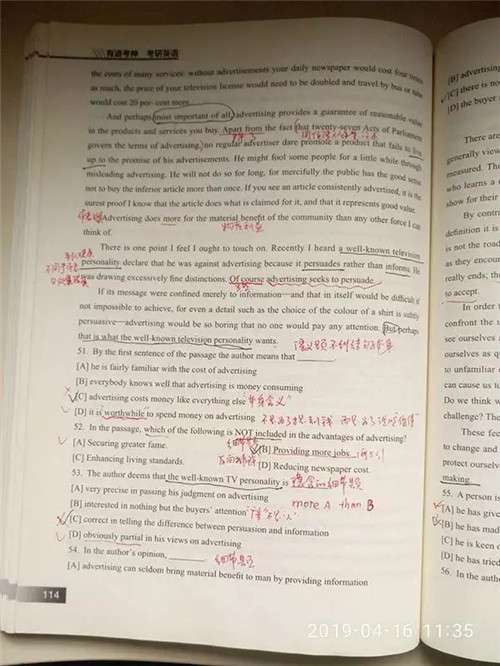 有道考神 考研英语
the costs of many services: without advertisements your daily newspaper would cost four times
as much, the price of your television license would need to be doubled and travel by bus or tube
would cost 20 per cent more.
And perhaps most important of all advertising provides a guarantee of reasonable value
in the products and services you buy. Apart from the fact that twenty-seven Acts of Parliament
govern the terms of advertising, no regular advertiser dare promote a product that fails to live
up to the promise of his advertisements. He might fool some people for a little while through
misleading advertising. He will not do so for long, for mercifully the public has the good sense
not to buy the inferior article more than once. If you see an article consistently advertised, it is the
surest proof I know that the article does what is claimed for it, and that it represents good value.
Advertising does more for the material benefit of the community than any other force I can
物质利益
think of.
There is one point I feel I ought to touch on. Recently I heard a well-known television
personality declare that he was against advertising because it persuades rather than informs. He
was drawing excessively fine distinctions. Of course advertising seeks to persuade.
If its message were confined merely to information—and that in itself would be difficult if
not impossible to achieve, for even a detail such as the choice of the colour of a shirt is subtly
persuasive—advertising would be so boring that no one would pay any attention. But perhaps
that is what the well-known television personality wants.
51. By the first sentence of the passage the author means that
[A] he is fairly familiar with the cost of advertising
[B] everybody knows well that advertising is money consuming
[C] advertising costs money like everything else
[D] it is worthwhile to spend money on advertising
52. In the passage, which of the following is NOT included in the advantages of advertising?
[A] Securing greater fame. [B] Providing more jobs.
[C] Enhancing living standards. [D] Reducing newspaper cost.
53. The author deems that the well-known TV personality is
[A] very precise in passing his judgment on advertising
more A than B
[B] interested in nothing but the buyers' attention
[C] correct in telling the difference between persuasion and information
[D] obviously partial in his views on advertising
54. In the author's opinion, 细节题
[A] advertising can seldom bring material benefit to man by providing information
114
[B] advertising
[C] there is no
[D] the buyer
There are
generally view
measured. The
who learns a
show for their
By contr
definition it is
is not the road
as they encour
really ends; the
to accept.
In order
confront the
see ourselves
ourselves as q
to unfamiliar
can cause us to
Do we think w
challenge? The
These feel
to change and
protect ourselv
making.
55. A person is
[A] he has give
[B] he has made
[C] he is keen
[D] he has tried
56. In the auth
2019-04-16 11:35